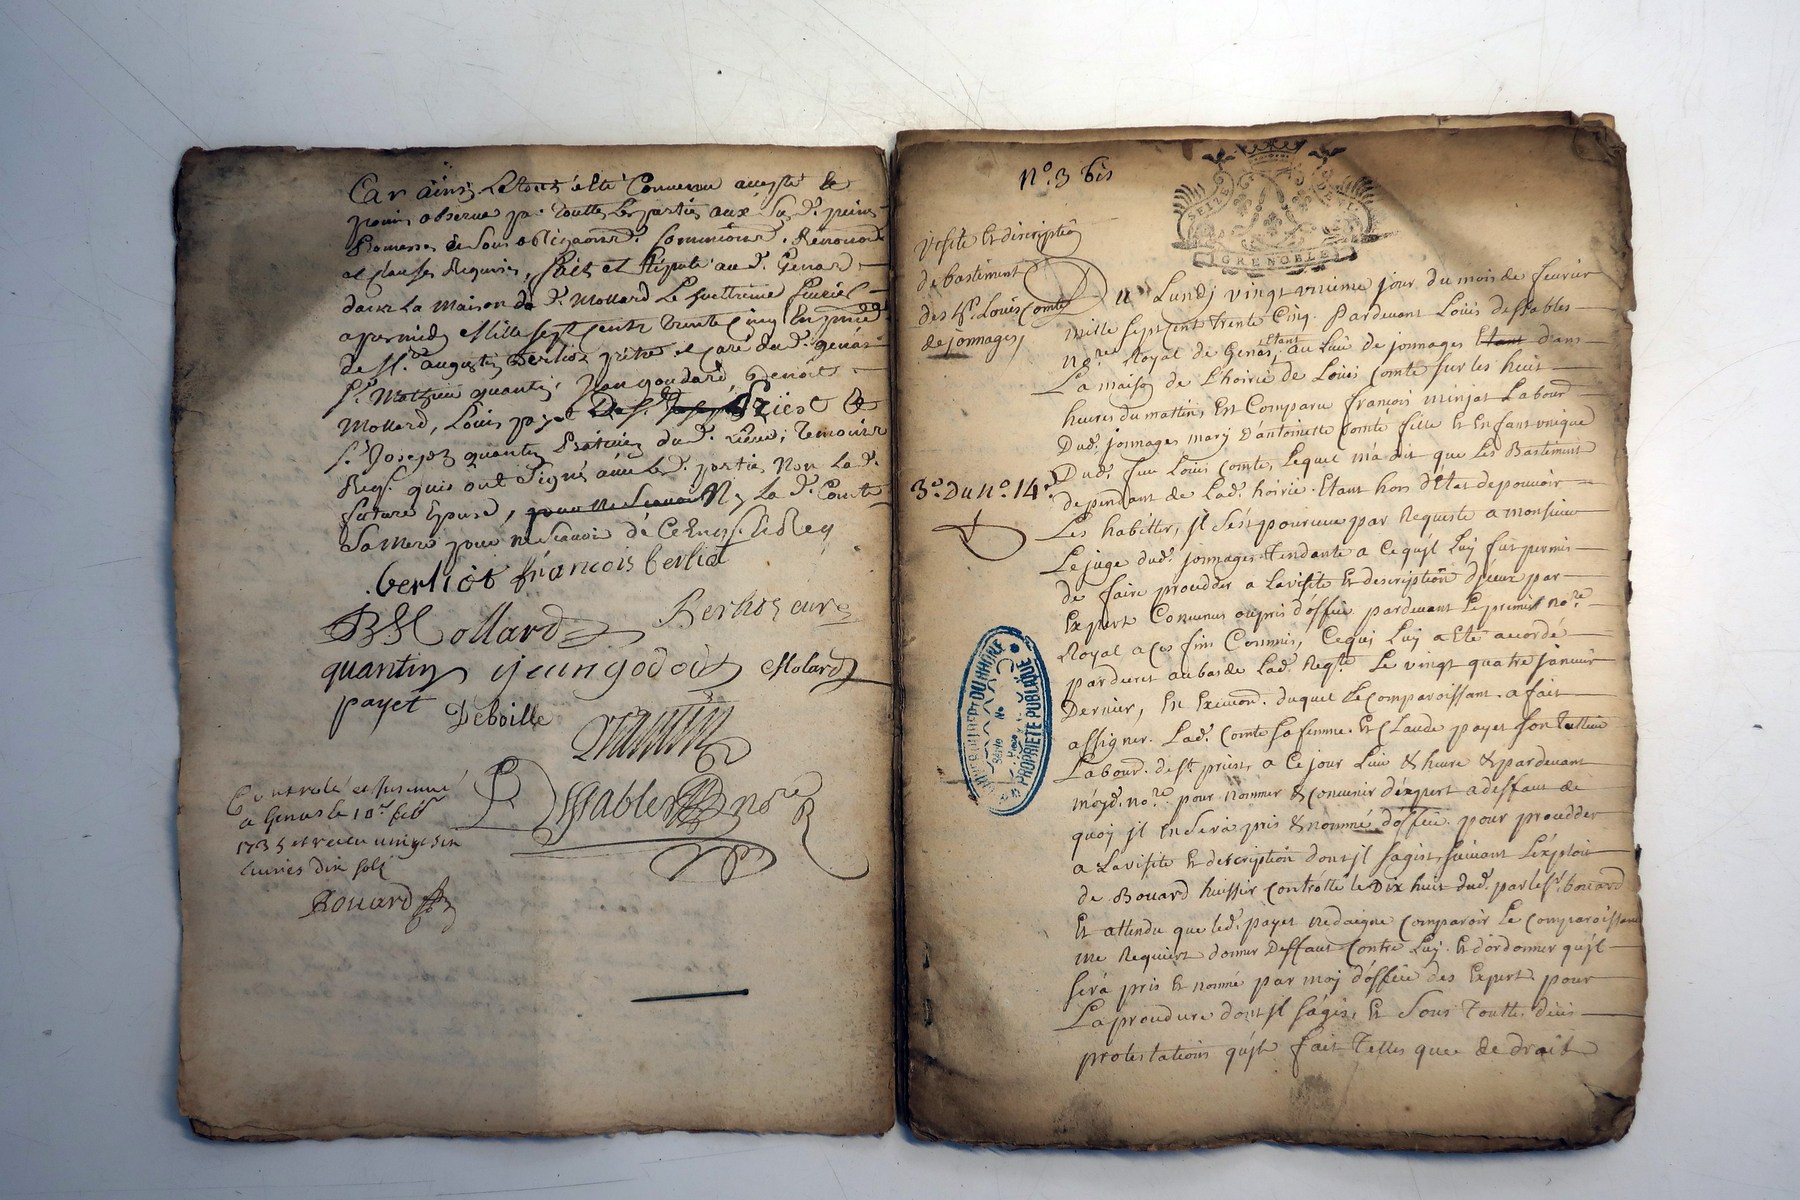 Car ainsi Le tout a été Convenu accepté et
promis observer par toutes Les parties aux
promesses et sous obligaons d. soumissions d. Renonons
et clauses Requises, fait et Répeté aud. Genas
dans La maison dud. Mollard Le
apresmidy Mille sept cents trente cinq En pnce
de Mre. augustin Berlioz prêtre et curé dud. genas
Sr. Mathieu quantin, Jean goudard, Benoit
Mollard, Louis payet Priest &
Sr. Joseph quantin Praticien dud. Lieu, Temoins
Reqs. quis ont Signé avec Led. parties Non La d.
future Epouse, Ny La d. Comte
Sa Mere pour ne Scavoir de ce Enqs. & Req
berliot françois berliot
B Mollard Berlioz curé
quantin jean godard Molard
payet Deboille
quantin
DesStables nore R
Controlé et Insinué
a Genas le 10e. feb
1735 et receu vingt six
livres dix sols
Bouard
No. 3 bis
SEIZE DEN.
GRENOBLE
Visite Et discription
de bastiment
des hs. Louis Comte
de jonnages
Du Lundj vingt unieme jour du mois de feuvrier
mille sept cent trente Cinq. Pardevant Loüis desstables
nore. Royal de Genas, Etant au Lieu de jonnages Etant dans
La maison de L'hoirie de Loüis Comte sur les huit
heures du mattin, Est Comparu françois minjat Labour
Dud. jonnages marj d'antoinette Comte fille Et Enfant unique
Dud. feu Louis Comte, Lequel m'a dit que Les Bastiment
3e. Du No. 14
dependant de Lad. hoirie. Etant hors d'Etat de pouvoir
Les habitter, jl s'est pourveu par Requeste a monsieur
Le juge dud. jonnages Tendante a Ce qu'jl Luy fut permis
de faire proceder a La visite Et description d'jceux par
Expert Convenus ou pris d'office pardevant Le premier nore.
Royal a ces fins Commis, Ce qui Luy a Eté accordé
par decret au bas de Lad. Reqte. Le vingt quatre janvier
Dernier, En Execuon. duquel Le Comparoissant a fait
assigner Lad. Comte sa femme Et Claude payet son
Labour. de st. priest, a Ce jour Lieu & heure & pardevant
moyd. nore. pour nommer & Convenir d'expert a deffaut de
quoy jl En Sera pris & nommé d'office pour proceder
a La visite Et description dont jl s'agist, suivant L'exploit
de Bouard huissier Controllé le Dix huit dud. par le Sr. bouard
Et attendu que led. payet ne daigne Comparoir Le Comparoissant
me Requiert donner Deffaut Contre Luy Et d'ordonner qu'jl
sera pris Et nommé par moy d'office des Expert pour
La procedure dont jl s'agit, Et Sous Toutte deües
protestations qu'jl fait Telles que de droit
DEPARTEMENT DU RHÔNE
Série No
Pièce
PROPRIÉTÉ PUBLIQUE